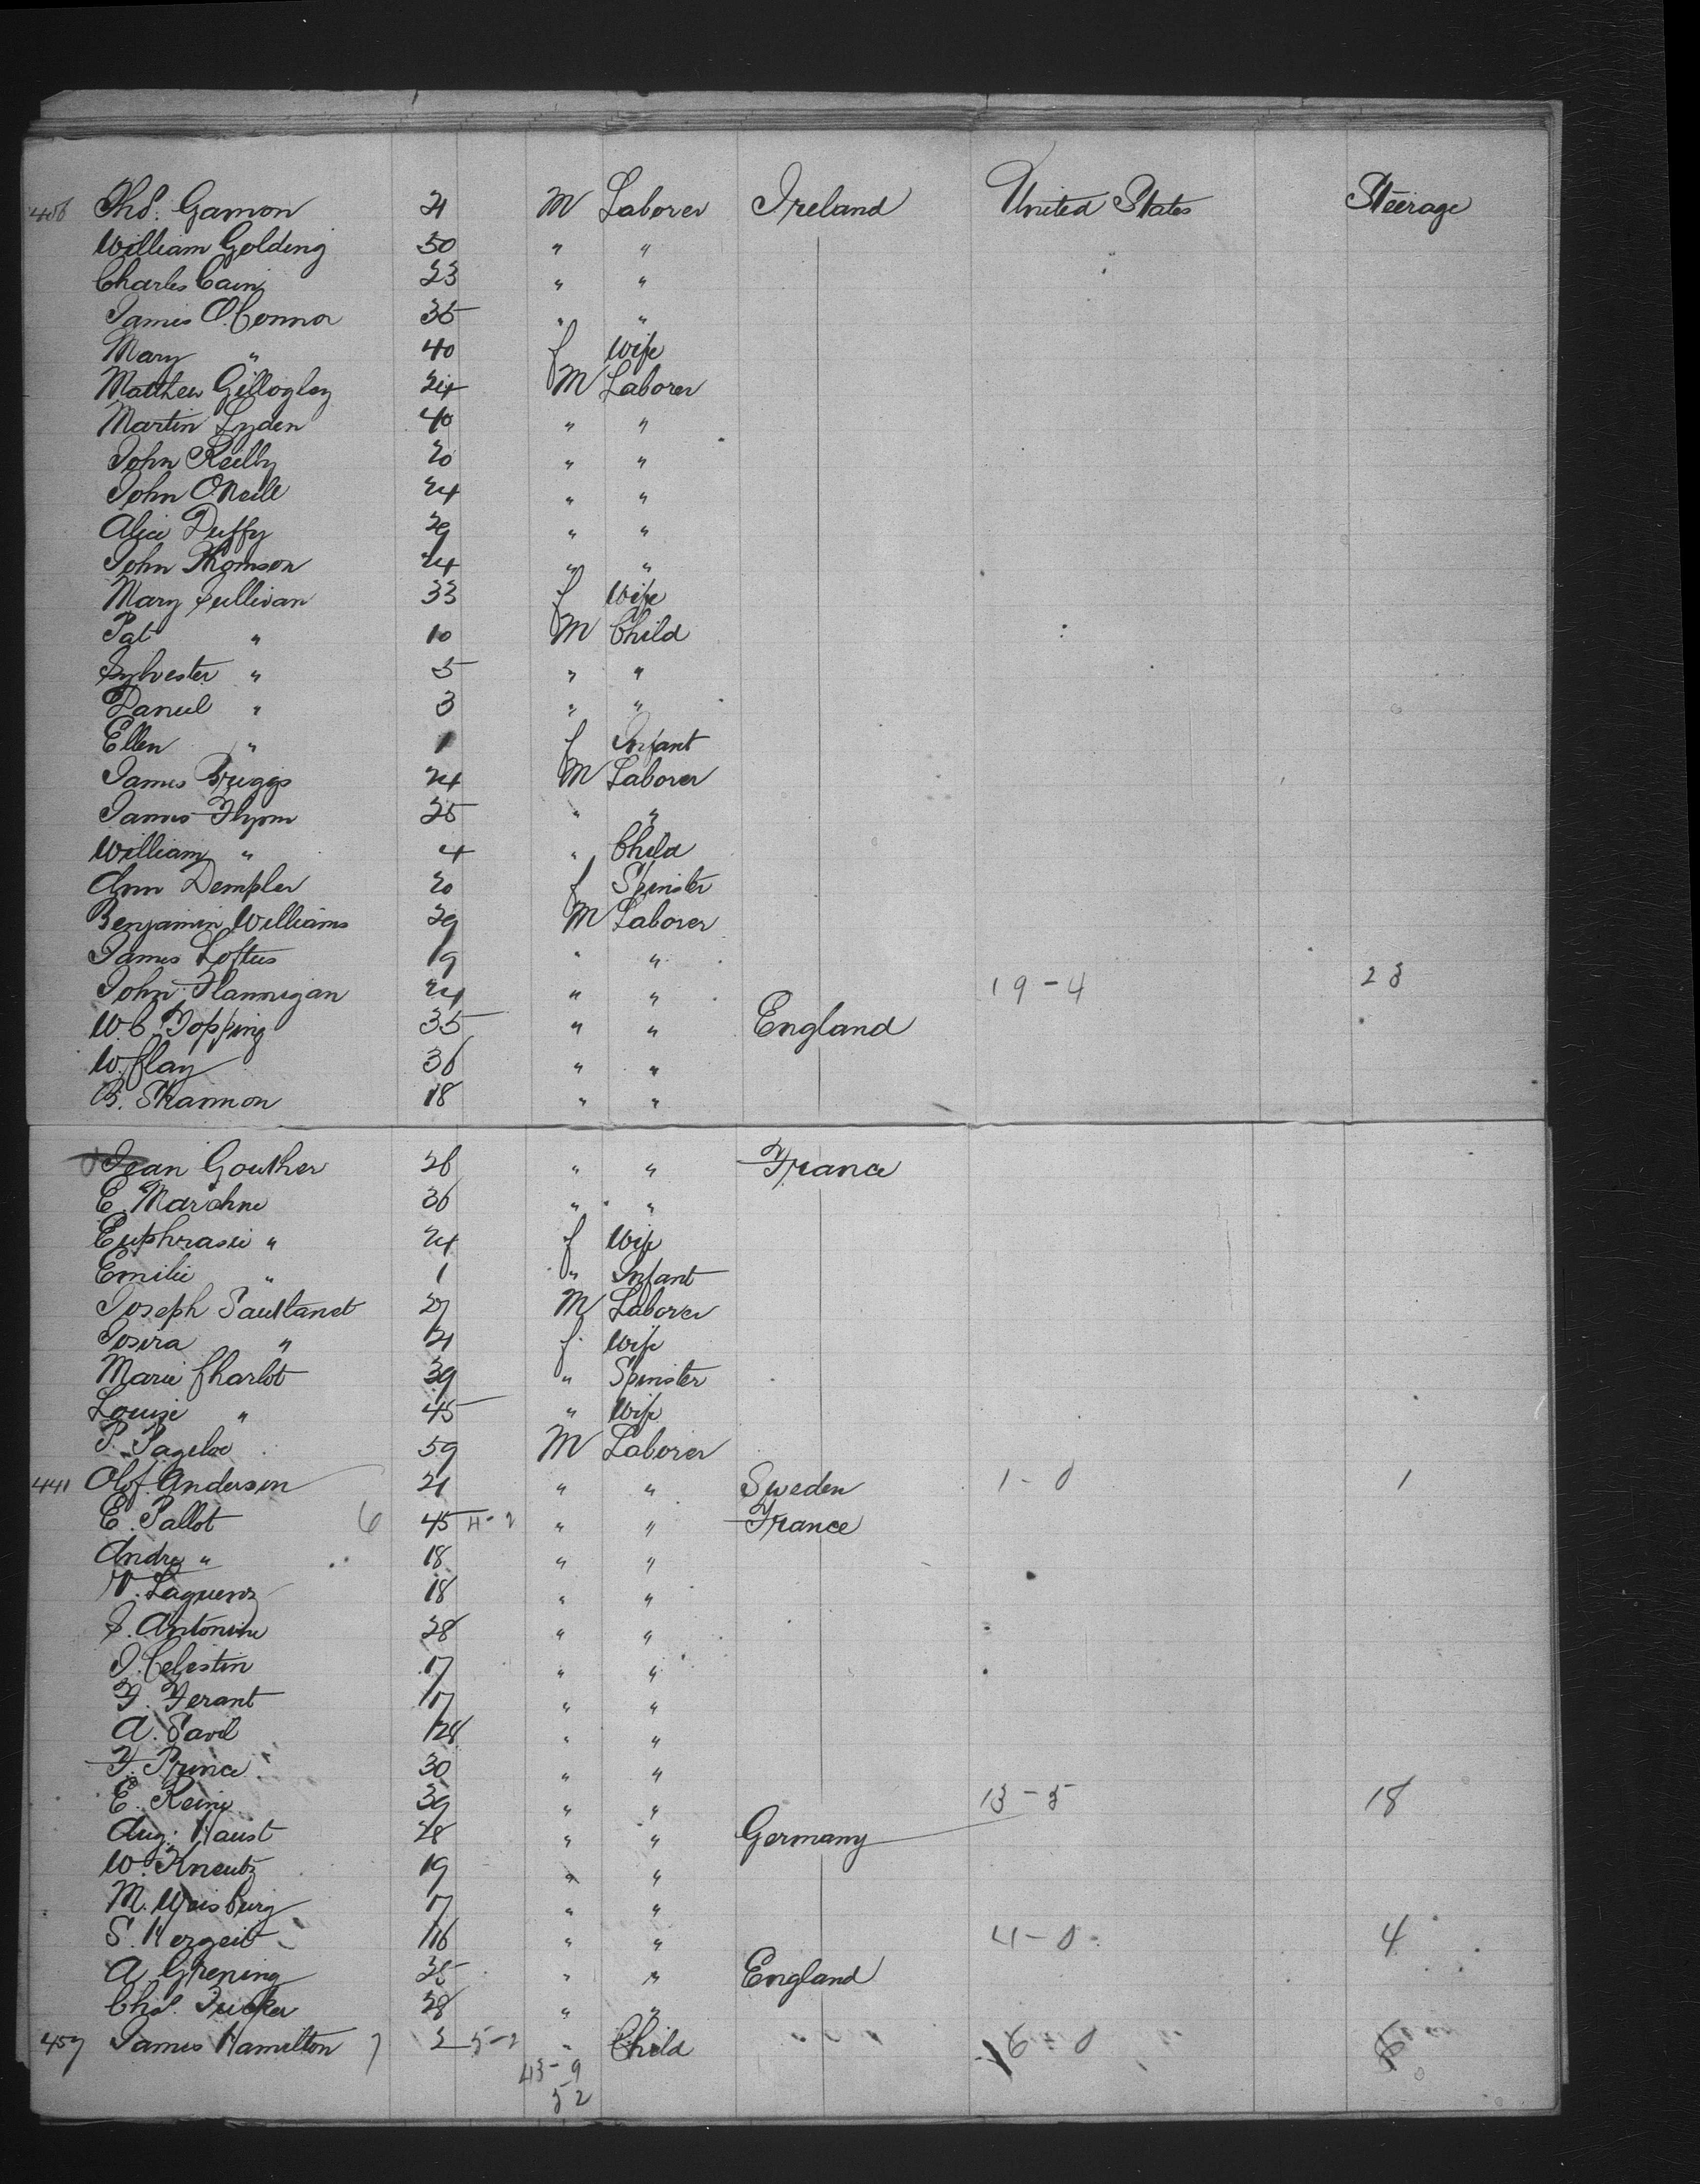 406 Thos. Gamon 21 M Laborer Ireland United States Steerage
William Golding 30 " "
Charles Cain 23 " "
James O'Connor 35 " "
Mary " 40 f Wife
Matthew Gillogley 24 M Laborer
Martin Lyden 40 " "
John Reilly 20 " "
John O'Neill 24 " "
Alice Duffy 29 " "
John Thomson 24 " "
Mary Sullivan 33 f Wife
Pat " 10 M Child
Sylvester " 5 " "
Daniel " 3 " "
Ellen " 1 f Infant
James Briggs 24 M Laborer
James Flynn 25 " "
William " 4 " Child
Ann Dempler 20 f Spinster
Benjamin Williams 29 M Laborer
James Loftus 19 " "
John Flannigan 24 " " 19-4 23
W. C. Topping 35 " " England
W. Clay 36 " "
B. Shannon 18 " "
Jean Gouther 26 " " France
E. Marchne 36 " "
Euphrasie " 24 f Wife
Emilie " 1 " Infant
Joseph 27 M Laborer
" 21 f Wife
Marie Charlot 39 " Spinster
Louise " 45 " Wife
P. 59 M Laborer
441 Olof Anderson 21 " " Sweden 1-0 1
E. Pallot 6 45 4-2 " " France
Andre " 18 " "
18 " "
Antonine 28 " "
J. Celestin 17 " "
F. Ferant 17 " "
A. 28 " "
F. Prince 30 " "
E. Reine 39 " " 13-5 18
Aug. Haust 28 " " Germany
W. Kneutz 19 " "
M. Weisburg 17 " "
S. Hergeit 16 " " 4-0 4
A. Grening 35 " " England
Chas. Tucker 28 " "
457 James Hamilton 7 2 5-2 " Child 6-0 6
43-9
52